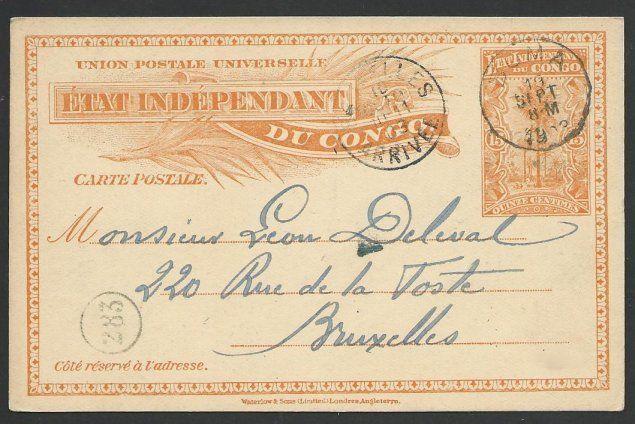 UNION POSTALE UNIVERSELLE
ÉTAT INDÉPENDANT
DU CONGO
CARTE POSTALE.
ÉTAT INDÉPENDANT
DU CONGO
15 15
QUINZE CENTIMES
ARRIVEE
SEPT
8-M
Monsieur Léon Deleval
220 Rue de la Poste
Bruxelles
283
Côté réservé à l'adresse.
Waterlow & Sons (Limited) Londres, Angleterre.